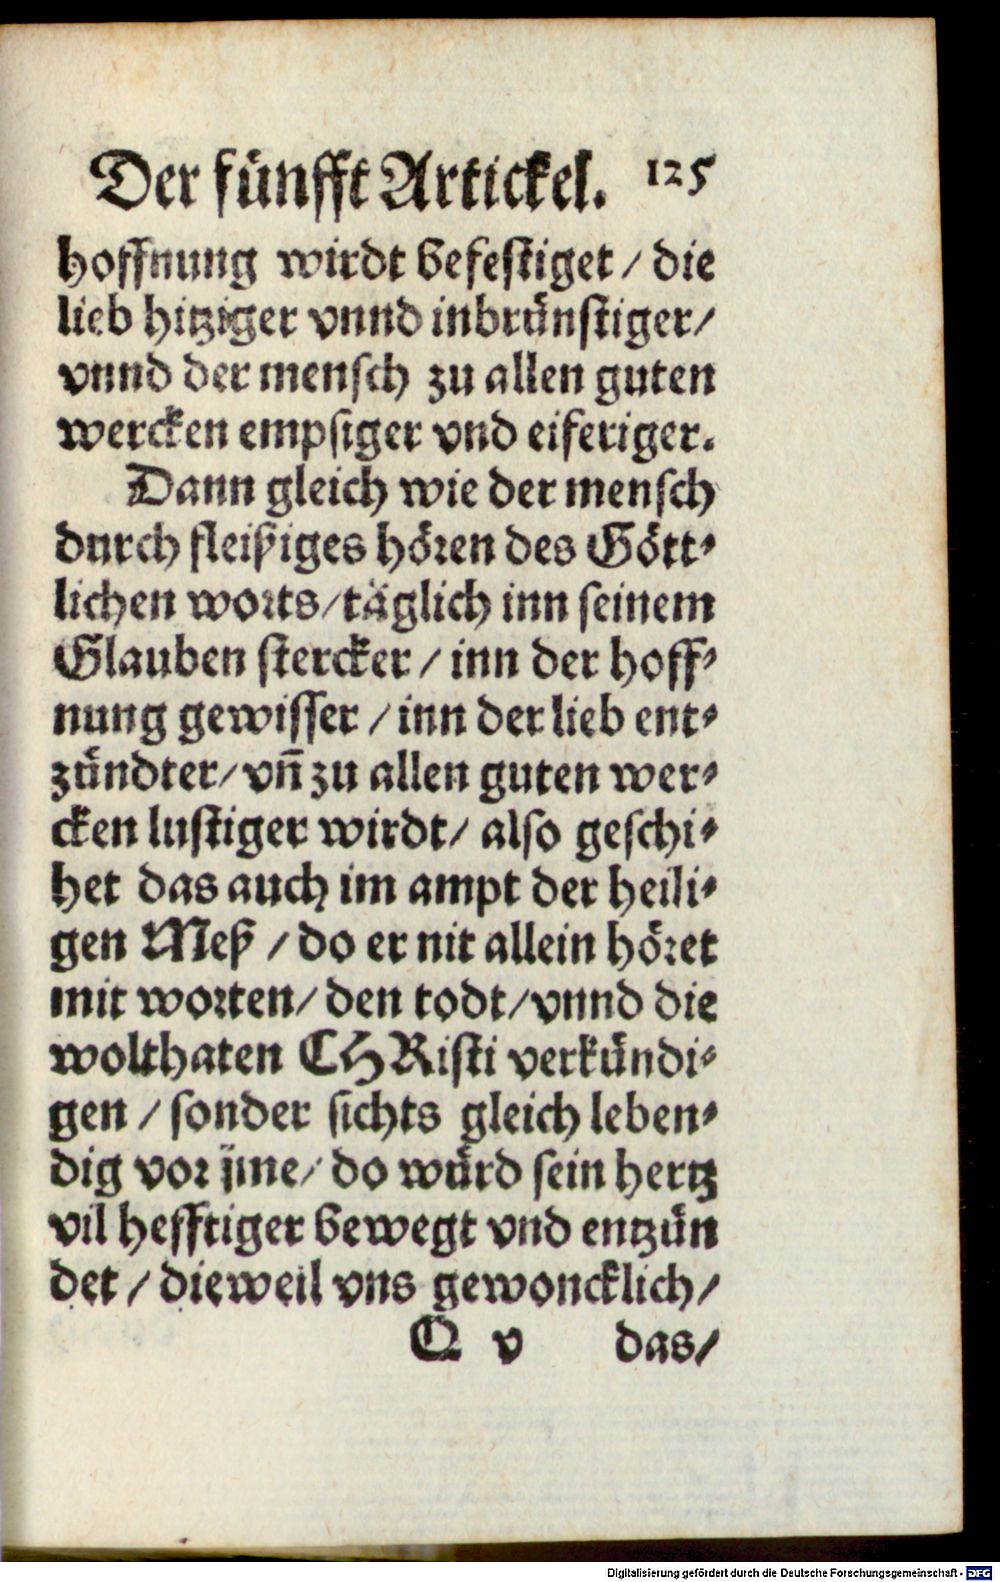 Der fünfft Artickel. 125
hoffnung wirdt befestiget / die
lieb hitziger vnnd inbrünstiger/
vnnd der mensch zu allen guten
wercken empsiger vnd eiferiger.
Dann gleich wie der mensch
durch fleißiges hören des Gött-
lichen worts/täglich inn seinem
Glauben stercker / inn der hoff-
nung gewisser / inn der lieb ent-
zündter/ vn̄ zu allen guten wer-
cken lustiger wirdt/ also geschi-
het das auch im ampt der heili-
gen Meß / do er nit allein höret
mit worten/ den todt/vnnd die
wolthaten CHRisti verkündi-
gen / sonder sichts gleich leben-
dig vor jme/ do würd sein hertz
vil hefftiger bewegt vnd entzün
det / dieweil vns gewoncklich/
Q v das/
Digitalisierung gefördert durch die Deutsche Forschungsgemeinschaft - DFG